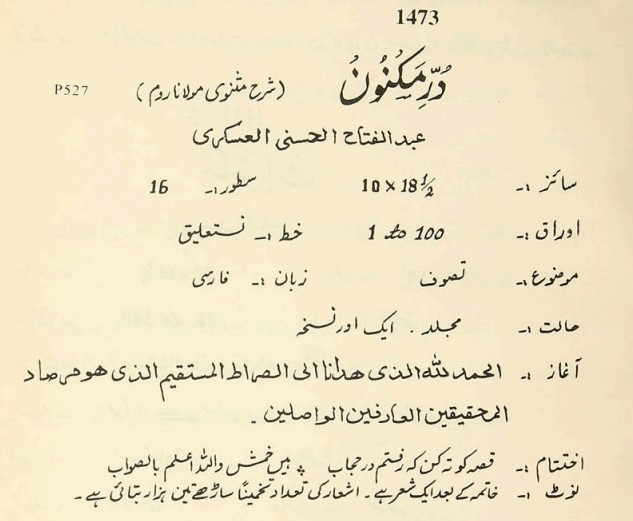 1473
P527
دُرِّ مَکنُونُ (شرح مثنوی مولانا روم)
عبدالفتاح الحسنی العسکری
سائز :- 10 x 18½ سطور :- 16
اوراق :- 1 to 100 خط :- نستعلیق
موضوع :- تصوف زبان :- فارسی
حالت :- مجلد . ایک اور نسخہ
آغاز :- الحمد للہ الذی ھدانا الی الصراط المستقیم الذی ھو مرصاد
المحقیقین العارفین الواصلین .
اختتام :- قصہ کوتہ کن کہ رفتم در حجاب ؞ ہیں خمش واللہ اعلم بالصواب
نوٹ :- خاتمہ کے بعد ایک شعر ہے . اشعار کی تعداد تخمیناً ساڑھے تین ہزار بتائی ہے .